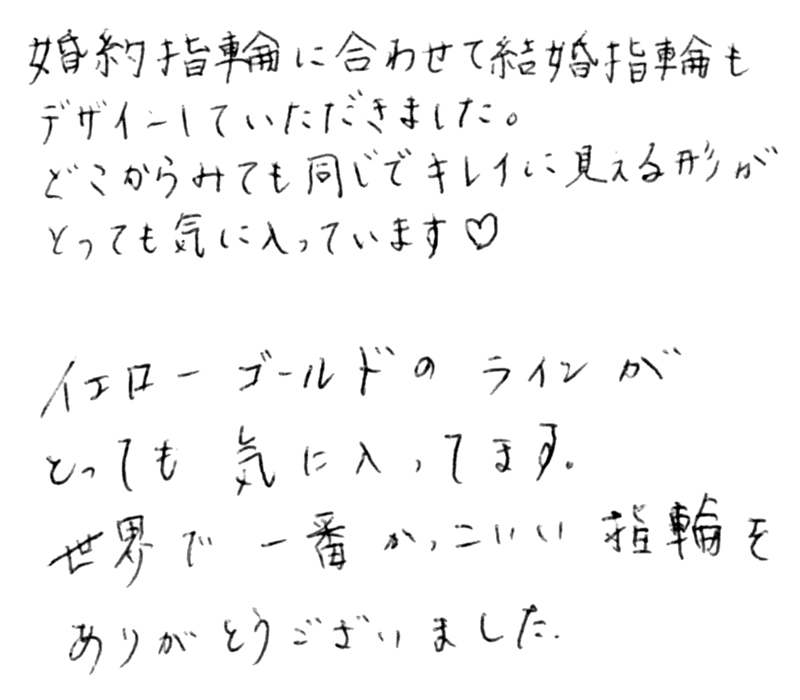 婚約指輪に合わせて結婚指輪も
デザインしていただきました。
どこからみても同じでキレイに見える形が
とっても気に入っています♡
イエローゴールドのラインが
とっても気に入ってます。
世界で一番かっこいい指輪を
ありがとうございました.